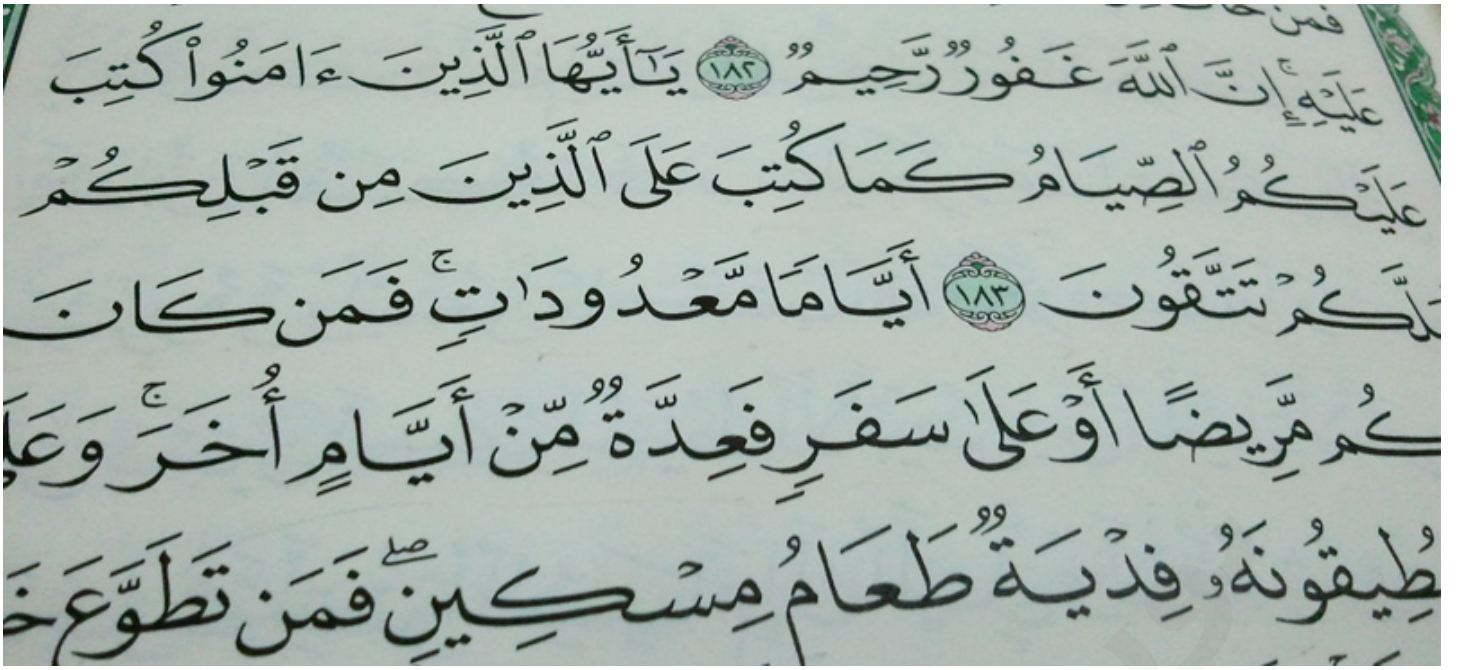 عَلَيْهِ ۚ إِنَّ ٱللَّهَ غَفُورٌ رَّحِيمٌ ١٨٢ يَـٰٓأَيُّهَا ٱلَّذِينَ ءَامَنُوا۟ كُتِبَ
عَلَيْكُمُ ٱلصِّيَامُ كَمَا كُتِبَ عَلَى ٱلَّذِينَ مِن قَبْلِكُمْ
لَعَلَّكُمْ تَتَّقُونَ ١٨٣ أَيَّامًا مَّعْدُودَٰتٍ ۚ فَمَن كَانَ
كُم مَّرِيضًا أَوْ عَلَىٰ سَفَرٍ فَعِدَّةٌ مِّنْ أَيَّامٍ أُخَرَ ۚ وَعَلَى
يُطِيقُونَهُۥ فِدْيَةٌ طَعَامُ مِسْكِينٍ ۖ فَمَن تَطَوَّعَ